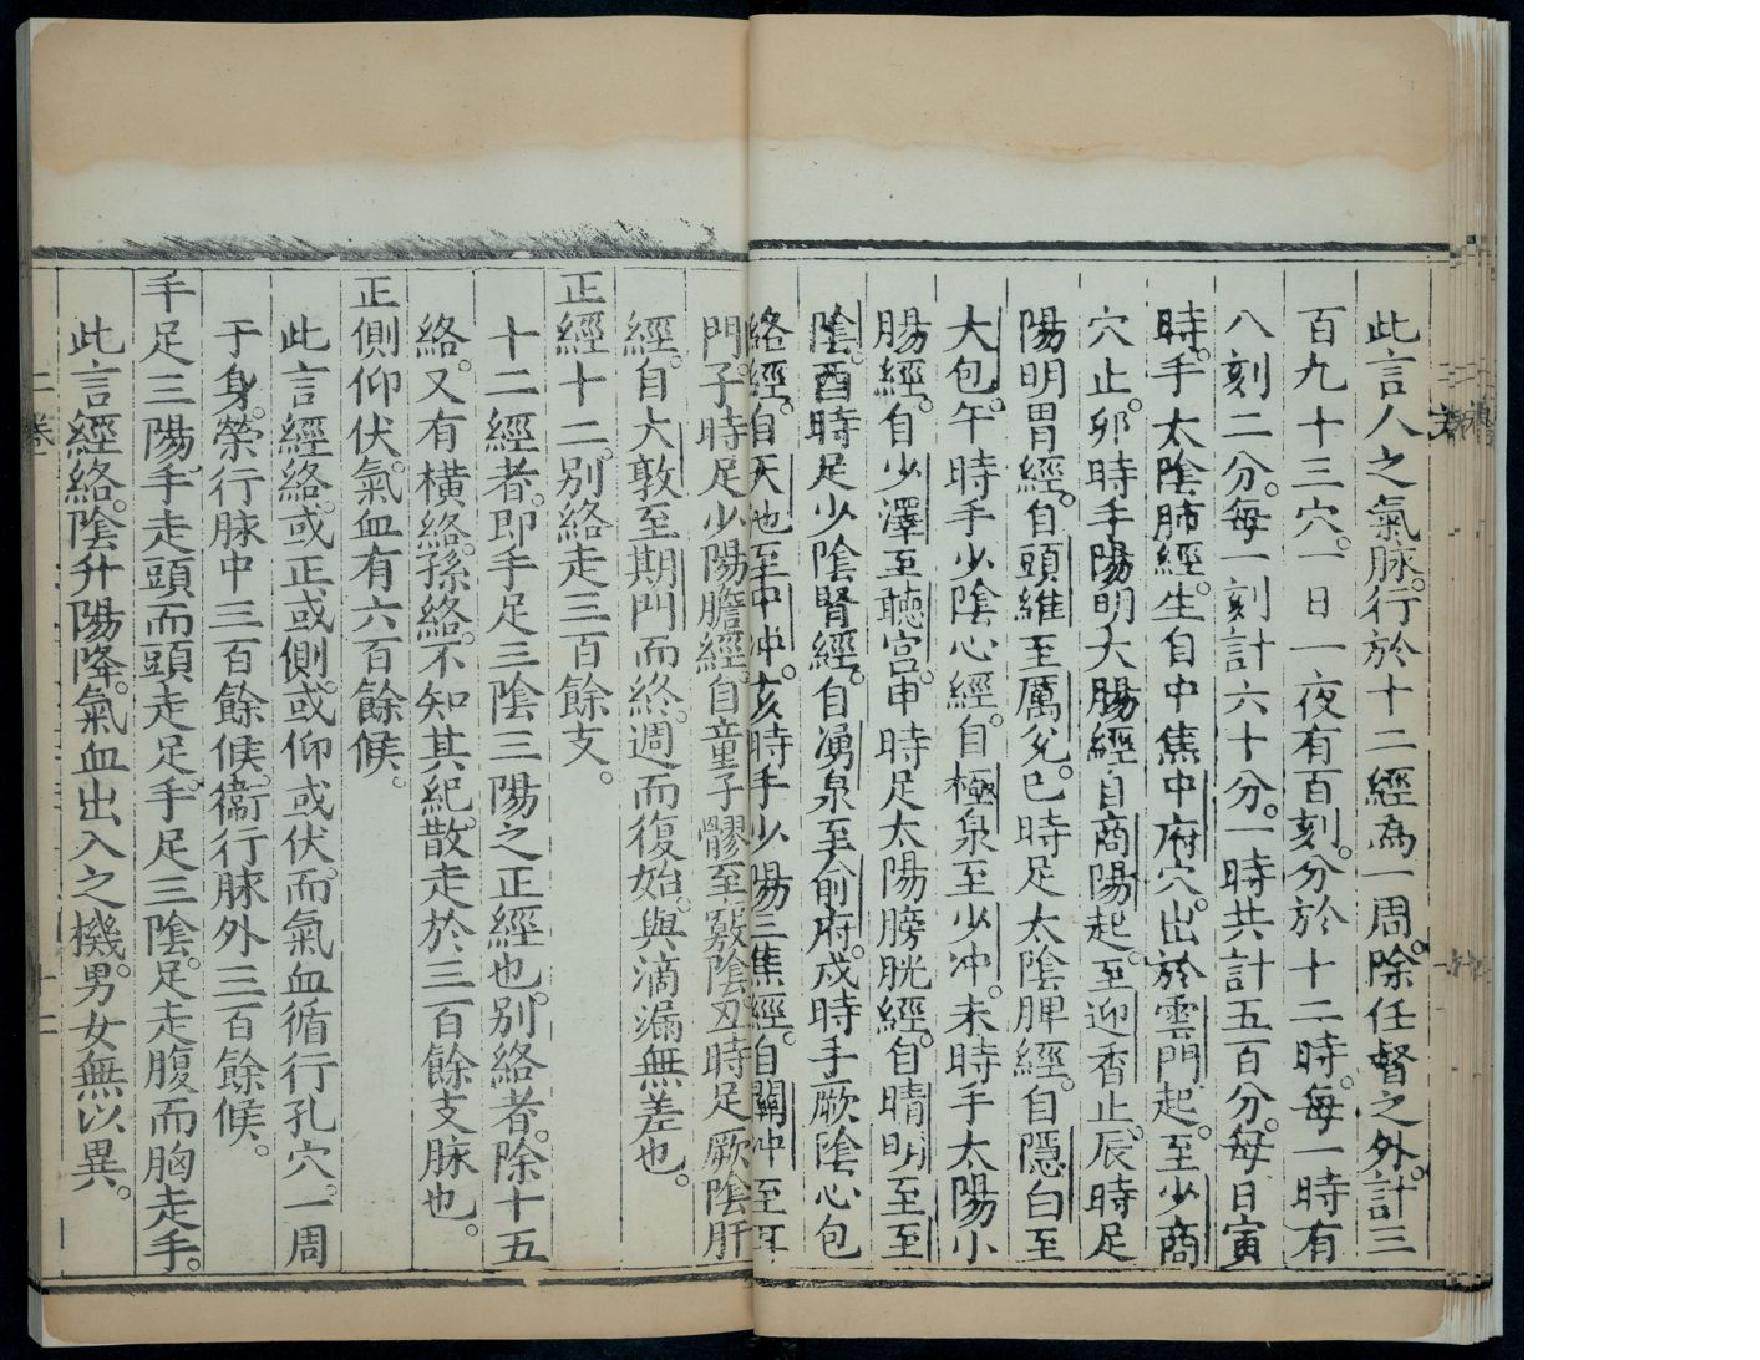 此言人之氣脉。行於十二經為一周。除任督之外。計三
百九十三穴。一日一夜有百刻。分於十二時。每一時有
八刻二分。每一刻計六十分。一時共計五百分。每日寅
時。手太陰肺經。生自中焦中府穴。出於雲門起。至少商
穴止。卯時手陽明大腸經自商陽起。至迎香止。辰時足
陽明胃經。自頭維至厲兌。巳時足太陰脾經。自隱白至
大包。午時手少陰心經。自極泉至少冲。未時手太陽小
腸經。自少澤至聽宮。申時足太陽膀胱經。自晴明至至
陰。酉時足少陰腎經。自湧泉至俞府。戌時手厥陰心包
絡經。自天池至中冲。亥時手少陽三焦經。自關冲至耳
門。子時足少陽膽經。自童子髎至竅陰。丑時足厥陰肝
經。自大敦至期門而終。週而復始。與滴漏無差也。
正經十二。別絡走三百餘支。
十二經者。即手足三陰三陽之正經也。別絡者。除十五
絡。又有橫絡。孫絡。不知其紀。散走於三百餘支脉也。
正側仰伏。氣血有六百餘候。
此言經絡。或正或側。或仰或伏。而氣血循行孔穴。一周
于身。榮行脉中三百餘候。衞行脉外三百餘候。
手足三陽。手走頭而頭走足。手足三陰。足走腹而胸走手。
此言經絡。陰升陽降。氣血出入之機。男女無以異。
二卷
十二